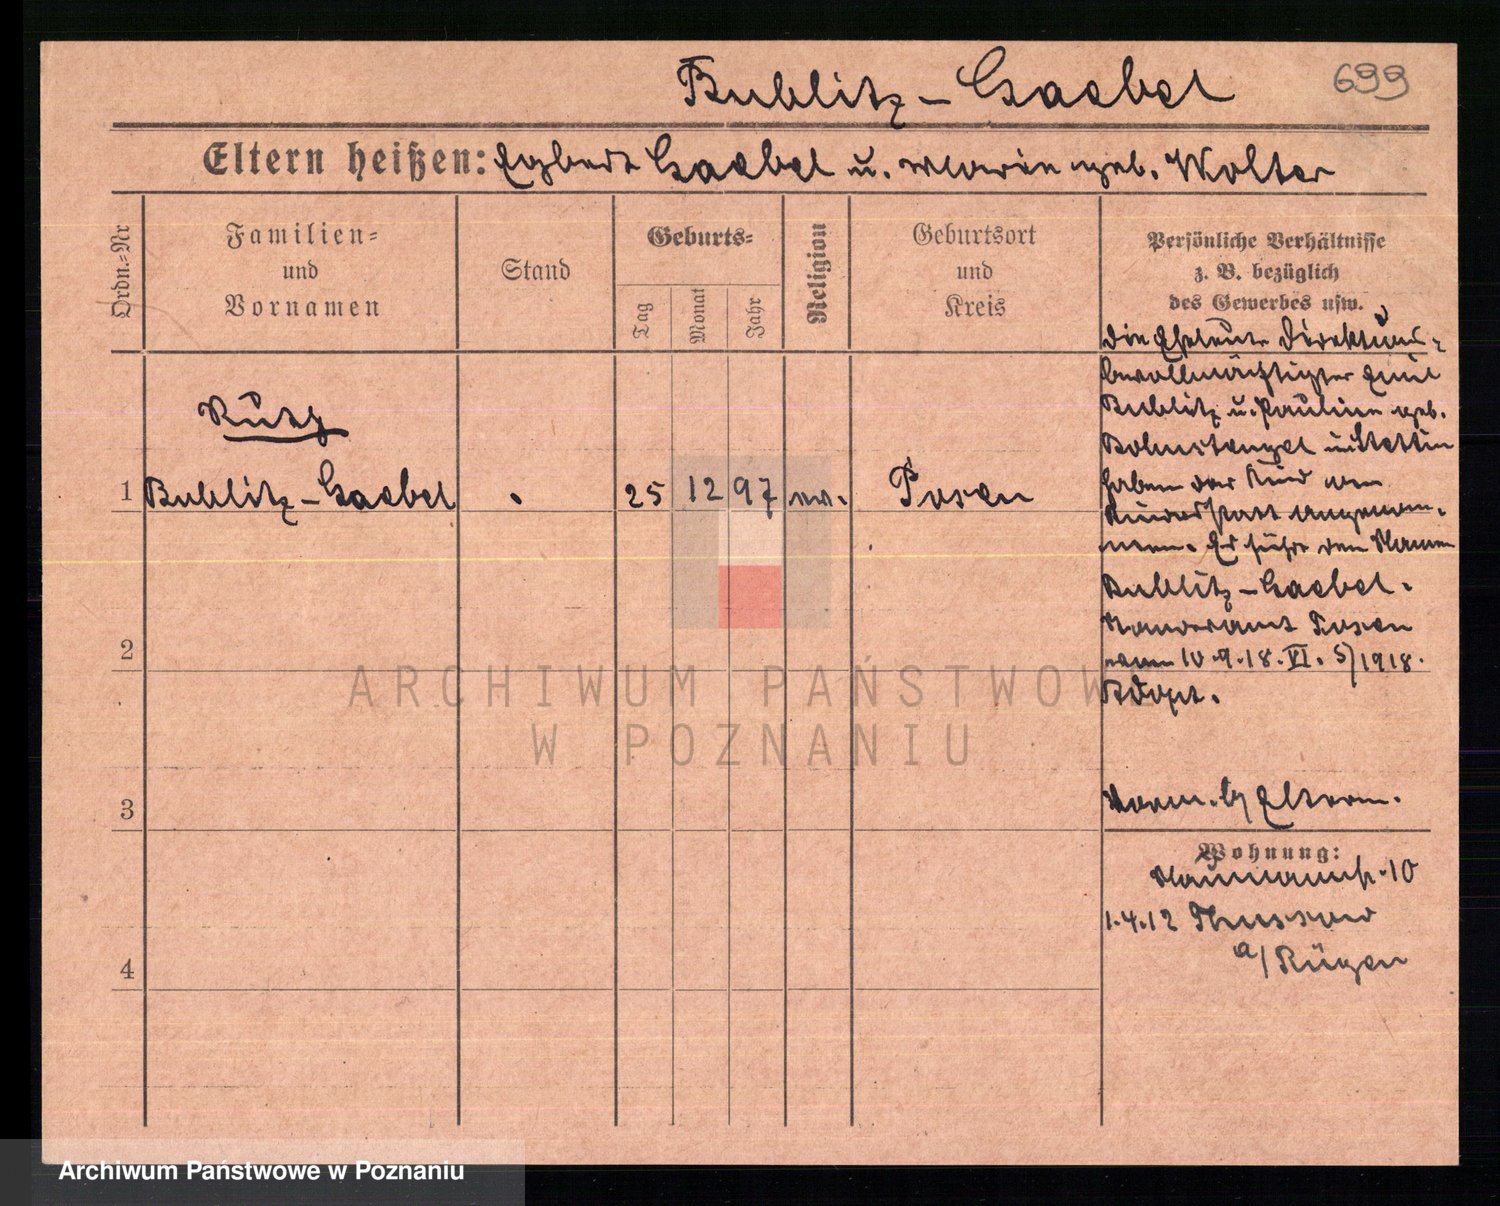 Bublitz - Gaebel
699
Eltern heißen: Egbert Gaebel u. Marie geb. Wolter
Ordn.-Nr
Familien-
und
Vornamen
Stand
Geburts-
Tag
Monat
Jahr
Religion
Geburtsort
und
Kreis
Persönliche Verhältnisse
z. B. bezüglich
des Gewerbes usw.
Ruth
1 Bublitz - Gaebel . 25 12 97 ev. Posen
Die Eheleute Direktions-
bevollmächtigter Emil
Bublitz u. Pauline geb.
in Stettin
haben das Kind an
Kindesstatt angenom-
men. Es führt den Namen
Bublitz - Gaebel.
Standesamt Posen
vom 10.9.18. VI. 5/1918.
Adopt.
2
3
Vorm. b/ Eltern.
Wohnung:
Naumannstr. 10
1.4.12
a/ Rügen
4
ARCHIWUM PAŃSTWOWE
W POZNANIU
Archiwum Państwowe w Poznaniu